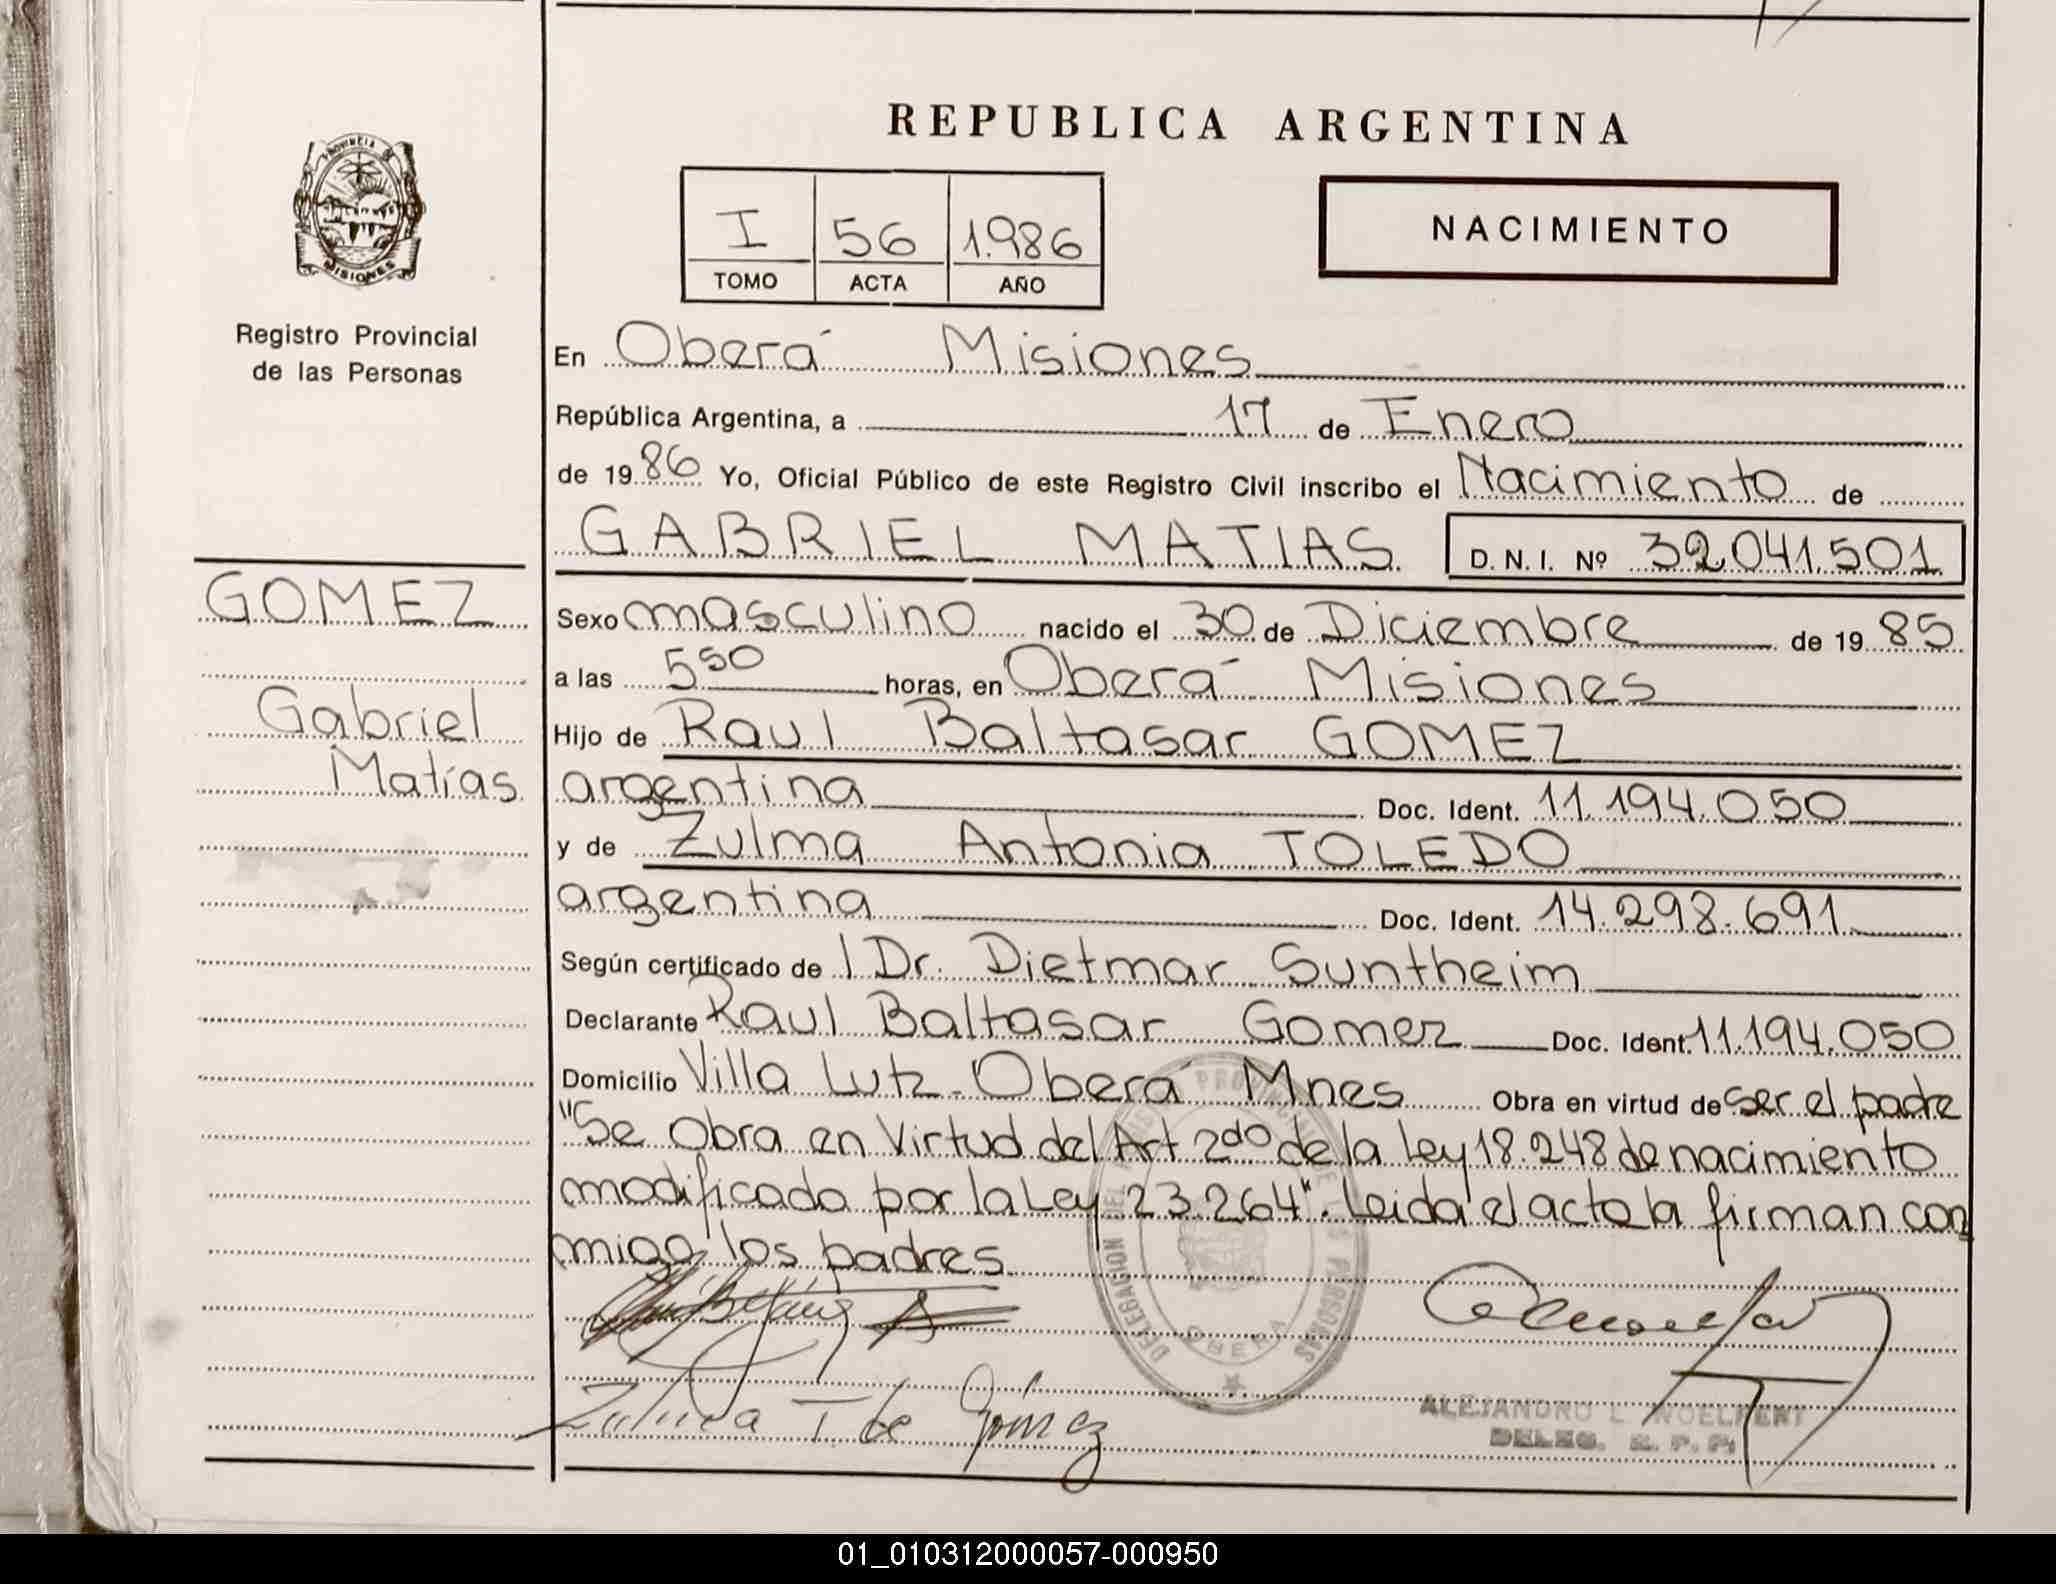 REPUBLICA ARGENTINA
PROVINCIA
MISIONES
Registro Provincial
de las Personas
I 56 1.986
TOMO ACTA AÑO
NACIMIENTO
En Oberá Misiones
República Argentina, a 17 de Enero
de 1986 Yo, Oficial Público de este Registro Civil inscribo el Nacimiento de
GABRIEL MATIAS D. N. I. Nº 32.041.501
GOMEZ
Gabriel
Matías
Sexo masculino nacido el 30 de Diciembre de 1985
a las 5 50 horas, en Oberá Misiones
Hijo de Raul Baltasar GOMEZ
argentina Doc. Ident. 11.194.050
y de Zulma Antonia TOLEDO
argentina Doc. Ident. 14.298.691
Según certificado de l Dr. Dietmar Suntheim
Declarante Raul Baltasar Gomez Doc. Ident. 11.194.050
Domicilio Villa Lutz - Oberá Mnes Obra en virtud de ser el padre
"Se Obra en Virtud del Art 2do de la Ley 18.248 de nacimiento
modificado por la Ley 23.264". Leida el acta la firman con
migo los padres
DELEGACION DEL REGISTRO PROVINCIAL DE LAS PERSONAS
OBERA
Zulma T. de Gomez
ALEJANDRO L. WOELFERT
DELEG. R. P. P.
01_010312000057-000950